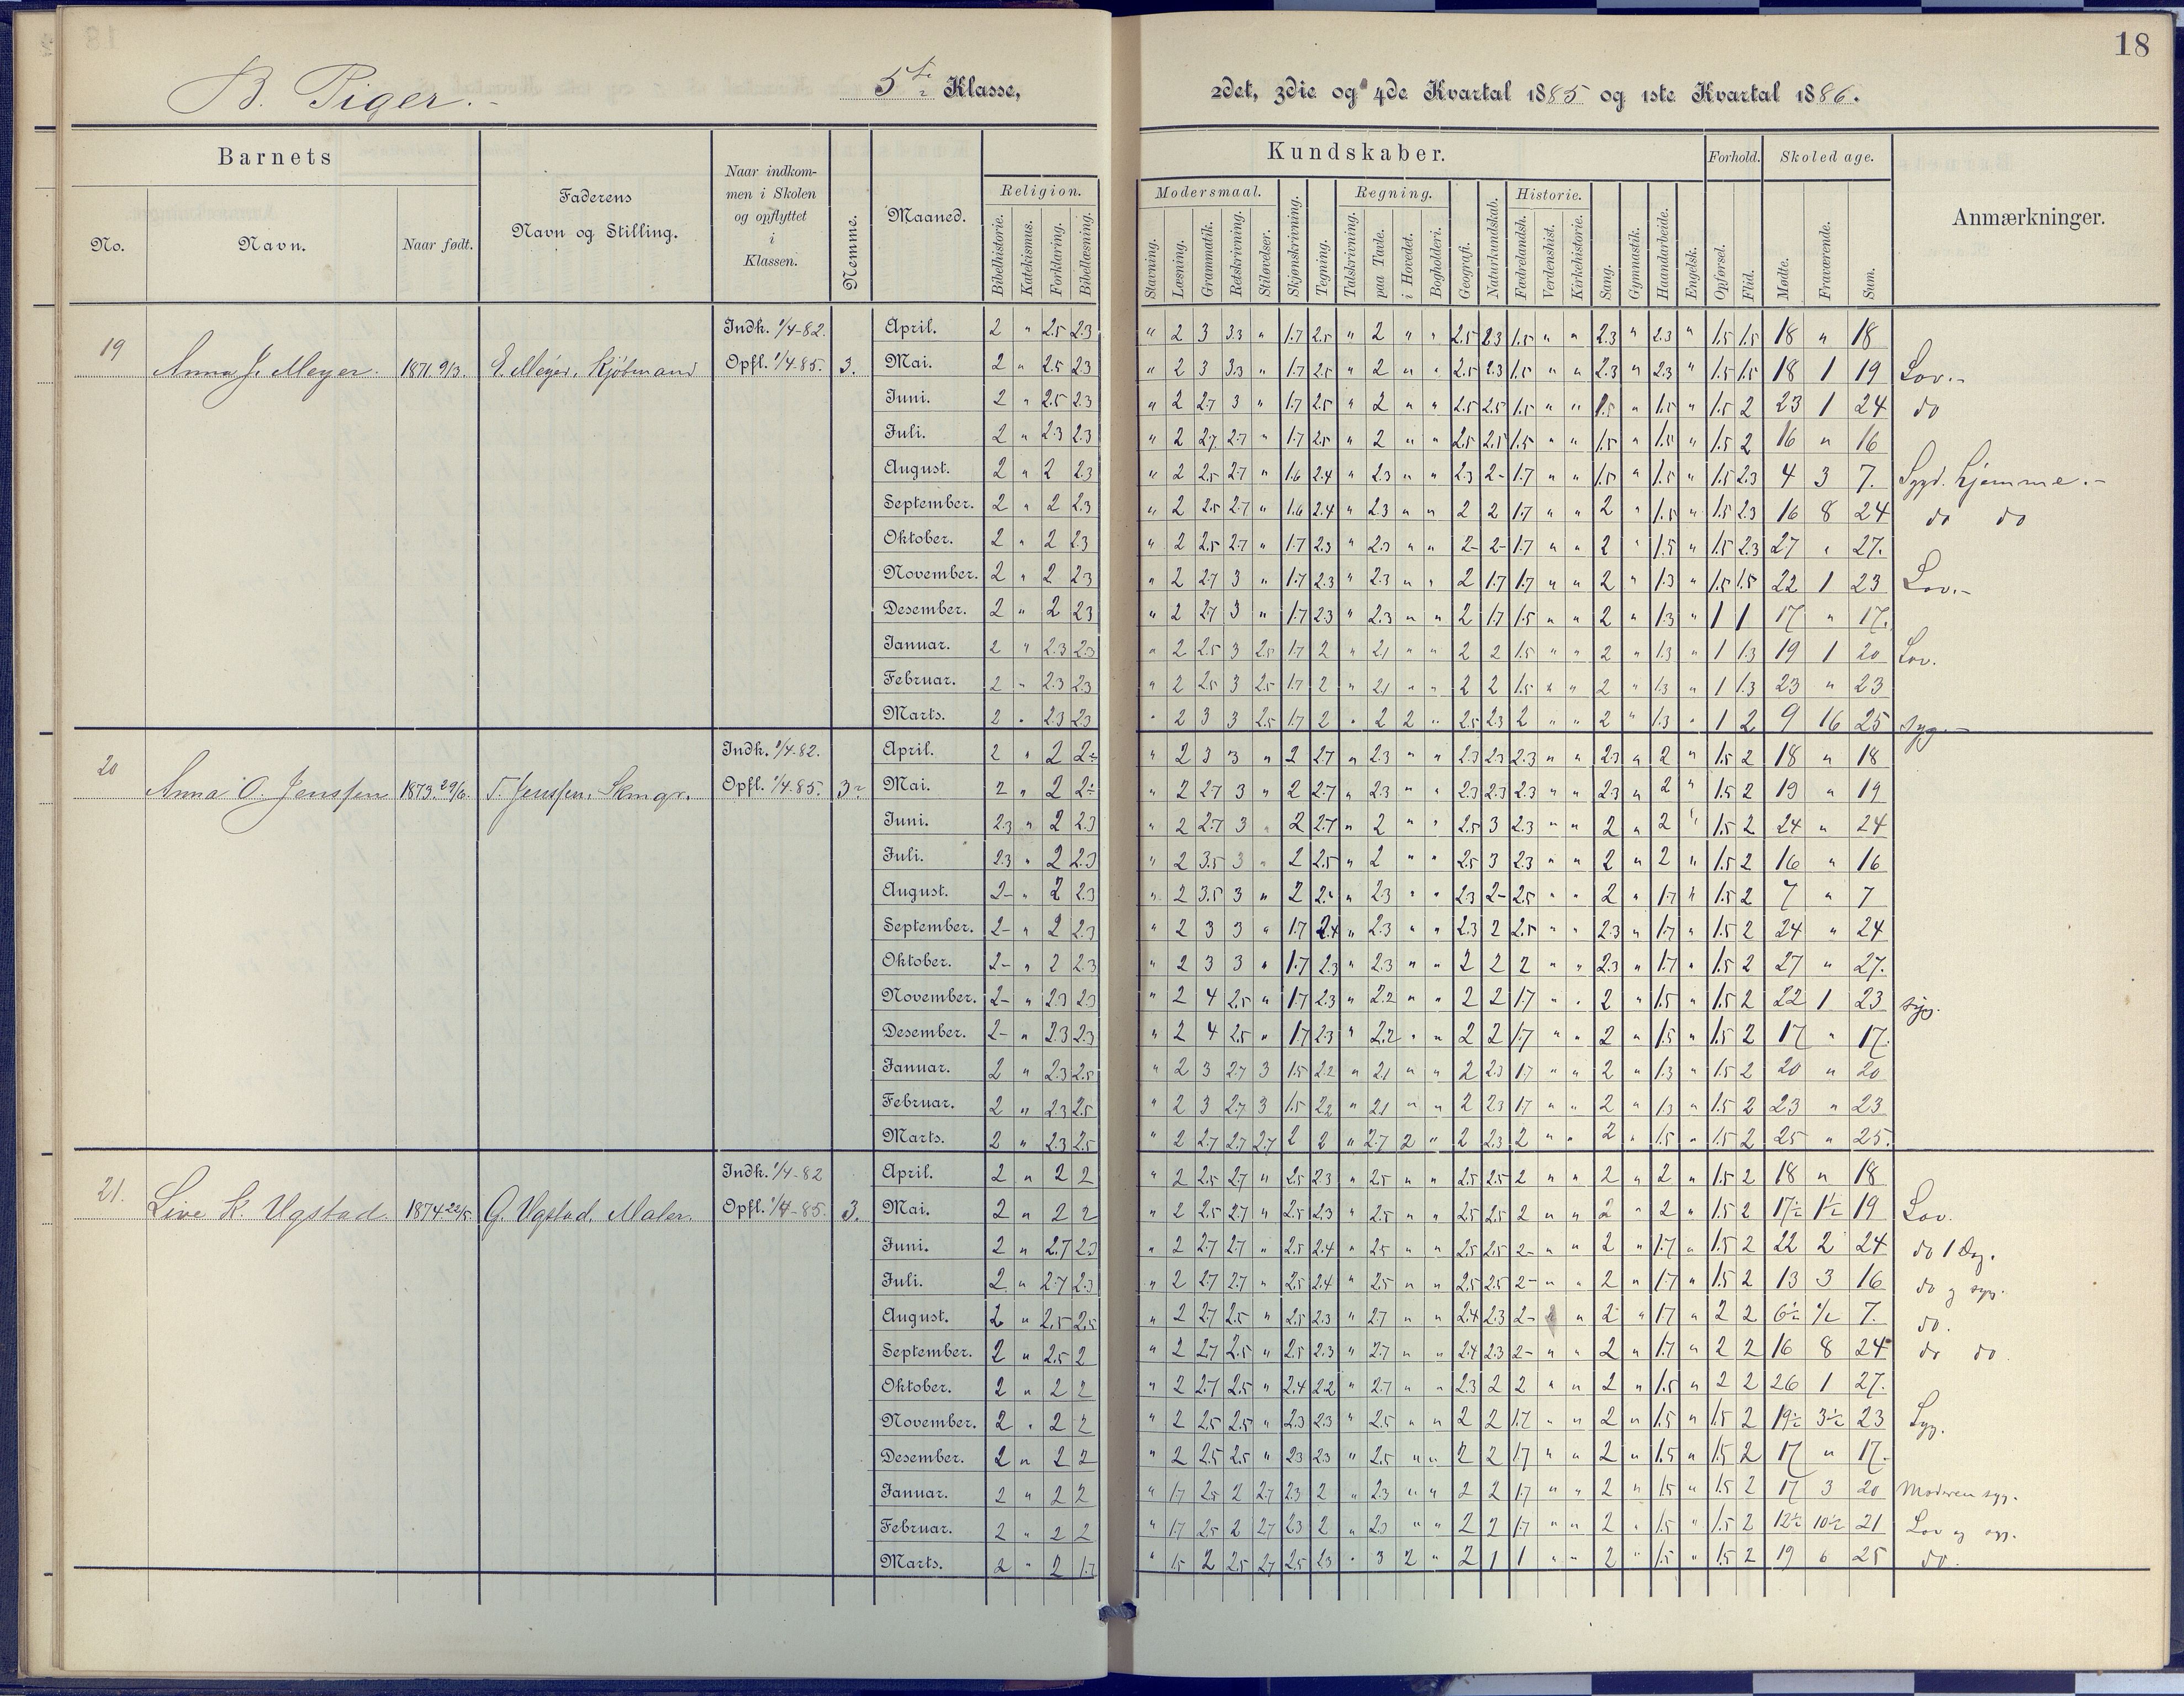 18
B. Piger.
5te Klasse,
2det, 3die og 4de Kvartal 1885 og 1ste Kvartal 1886.
Barnets
Kundskaber.
Forhold. Skoledage.
No. Navn. Naar født.
Faderens
Navn og Stilling.
Naar indkom-
men i Skolen
og opflyttet
i
Klassen.
Nemme.
Maaned.
Religion.
Bibelhistorie. Katekismus. Forklaring. Bibellæsning.
Modersmaal.
Stavning. Læsning. Grammatik. Retskrivning. Stiløvelser. Skjønskrivning. Tegning.
Regning.
Talskrivning. paa Tavle. i Hovedet. Bogholderi. Geografi. Naturkundskab.
Historie.
Fædrelandsh. Verdenshist. Kirkehistorie. Sang. Gymnastik. Haandarbeide. Engelsk. Opførsel. Flid. Mødte. Fraværende. Sum.
Anmærkninger.
19 Anna J. Meyer. 1871 9/3. E. Meyer, Kjøbmand Indk. 1/4-82. Opfl. 1/4.85. 3.
April. 2 " 2.5 2.3 " 2 3 3.3 " 1.7 2.5 " 2 " " 2.5 2.3 1.5 " " 2.3 " 2.3 " 1.5 1.5 18 " 18
Mai. 2 " 2.5 2.3 " 2 3 3.3 " 1.7 2.5 " 2 " " 2.5 2.3 1.5 " " 2.3 " 2.3 " 1.5 1.5 18 1 19 Lov.-
Juni. 2 " 2.5 2.3 " 2 2.7 3 " 1.7 2.5 " 2 " " 2.5 2.5 1.5 " " 1.5 " 1.5 " 1.5 2 23 1 24 do
Juli. 2 " 2.3 2.3 " 2 2.7 2.7 " 1.7 2.5 " 2 " " 2.5 2.5 1.5 " " 1.5 " 1.5 " 1.5 2 16 " 16
August. 2 " 2 2.3 " 2 2.5 2.7 " 1.6 2.4 " 2.3 " " 2.3 2- 1.7 " " 1.5 " 1.5 " 1.5 2.3 4 3 7. Sygd. hjemme.-
September. 2 " 2 2.3 " 2 2.5 2.7 " 1.6 2.4 " 2.3 " " 2 2 1.7 " " 2 " 1.5 " 1.5 2.3 16 8 24 do do
Oktober. 2 " 2 2.3 " 2 2.5 2.7 " 1.7 2.3 " 2.3 " " 2- 2- 1.7 " " 2 " 1.5 " 1.5 2.3 27 " 27.
November. 2 " 2 2.3 " 2 2.7 3 " 1.7 2.3 " 2.3 " " 2 1.7 1.7 " " 2 " 1.3 " 1.5 1.5 22 1 23 Lov.-
Desember. 2 " 2 2.3 " 2 2.7 3 " 1.7 2.3 " 2.3 " " 2 1.7 1.5 " " 2 " 1.3 " 1 1 17 " 17.
Januar. 2 " 2.3 2.3 " 2 2.5 3 2.5 1.7 2 " 2.1 " " 2 2 1.5 " " 2 " 1.3 " 1 1.3 19 1 20 Lov.
Februar. 2 " 2.3 2.3 " 2 2.5 3 2.5 1.7 2 " 2.1 " " 2 2 1.5 " " 2 " 1.3 " 1 1.3 23 " 23
Marts. 2 " 2.3 2.3 " 2 3 3 2.5 1.7 2 " 2 2 " 2.5 2.3 2 " " 2 " 1.3 " 1 2 9 16 25 syg.-
20 Anna O. Jenssen 1873. 29/6. T. Jenssen, Skmgr. Indk. 1/4-82. Opfl. 1/4.85. 3-
April. 2 " 2 2- " 2 3 3 " 2 2.7 " 2.3 " " 2.3 2.3 2.3 " " 2.3 " 2 " 1.5 2 18 " 18
Mai. 2 " 2 2- " 2 2.7 3 " 2 2.7 " 2.3 " " 2.3 2.3 2.3 " " 2.3 " 2 " 1.5 2 19 " 19
Juni. 2.3 " 2 2.3 " 2 2.7 3 " 2 2.7 " 2 " " 2.5 3 2.3 " " 2 " 2 " 1.5 2 24 " 24
Juli. 2.3 " 2 2.3 " 2 3.5 3 " 2 2.5 " 2 " " 2.5 3 2.3 " " 2 " 2 " 1.5 2 16 " 16
August. 2- " 2 2.3 " 2 3.5 3 " 2 " 2.3 " " 2.3 2- 2.5 " " 2 " 1.7 " 1.5 2 7 " 7
September. 2- " 2 2.3 " 2 3 3 " 1.7 2.4 " 2.3 " " 2.3 2 2.5 " " 2.3 " 1.7 " 1.5 2 24 " 24
Oktober. 2- " 2 2.3 " 2 3 3 " 1.7 2.3 " 2.3 " " 2 2 2 " " 2.3 " 1.7 " 1.5 2 27 " 27.
November. 2- " 2.3 2.3 " 2 4 2.5 " 1.7 2.3 " 2.2 " " 2 2 1.7 " " 2 " 1.5 " 1.5 2 22 1 23 syg.
Desember. 2- " 2.3 2.3 " 2 4 2.5 " 1.7 2.3 " 2.2 " " 2 2 1.7 " " 2 " 1.5 " 1.5 2 17 " 17.
Januar. 2 " 2.3 2.5 " 2 3 2.7 3 1.5 2.2 " 2.1 " " 2 2.3 1.7 " " 2 " 1.3 " 1.5 2 20 " 20
Februar. 2 " 2.3 2.5 " 2 3 2.7 3 1.5 2.2 " 2.1 " " 2 2.3 1.7 " " 2 " 1.3 " 1.5 2 23 " 23
Marts. 2 " 2.3 2.5 " 2 2.7 2.7 2.7 2 2 " 2.7 2 " 2 2.3 2 " " 2 " 1.5 " 1.5 2 25 " 25.
21. Live K. Ugstad. 1874 22/5. G. Ugstad, Maler. Indk. 1/4-82 Opfl. 1/4-85. 3.
April. 2 " 2 2 " 2 2.5 2.7 " 2.5 2.3 " 2.5 " " 2.5 2.5 2 " " 2 " 2 " 1.5 2 18 " 18
Mai. 2 " 2 2 " 2 2.5 2.7 " 2.5 2.3 " 2.5 " " 2.5 2.5 2 " " 2 " 2 " 1.5 2 17½ 1½ 19 Lov.
Juni. 2 " 2.7 2.3 " 2 2.7 2.7 " 2.5 2.4 " 2.5 " " 2.5 2.5 2- " " 2 " 1.7 " 1.5 2 22 2 24 do 1 Dag.
Juli. 2 " 2.7 2.3 " 2 2.7 2.7 " 2.5 2.4 " 2.5 " " 2.5 2.5 2- " " 2 " 1.7 " 1.5 2 13 3 16 do og syg.
August. 2 " 2.5 2.5 " 2 2.7 2.5 " 2.5 2.3 " 2.7 " " 2.4 2.3 2- " " 2 " 1.7 " 2 2 6½ ½ 7. do.
September. 2 " 2.5 2 " 2 2.7 2.5 " 2.5 2.3 " 2.7 " " 2.4 2.3 2- " " 2 " 1.7 " 2 2 16 8 24 do do
Oktober. 2 " 2 2 " 2 2.7 2.5 " 2.4 2.2 " 2.7 " " 2.3 2 2 " " 2 " 1.5 " 2 2 26 1 27.
November. 2 " 2 2 " 2 2.5 2.5 " 2.3 2.3 " 2.5 " " 2 2 1.7 " " 2 " 1.5 " 1.5 2 19½ 3½ 23 Syg.
Desember. 2 " 2 2 " 2 2.5 2.5 " 2.3 2.3 " 2.5 " " 2 2 1.7 " " 2 " 1.5 " 1.5 2 17 " 17.
Januar. 2 " 2 2 " 1.7 2.5 2 2.7 2.3 2 " 2.3 " " 2 2 1.7 " " 2 " 1.5 " 1.5 2 17 3 20 Moderen syg.
Februar. 2 " 2 2 " 1.7 2.5 2 2.7 2.3 2 " 2.3 " " 2 2 1.7 " " 2 " 1.5 " 1.5 2 12½ 10½ 21 Lov og syg.
Marts. 2 " 2 1.7 " 1.5 2 2.5 2.7 2.5 2.3 " 3 2 " 2 1 1 " " 2 " 1.5 " 1.5 2 19 6 25 do.